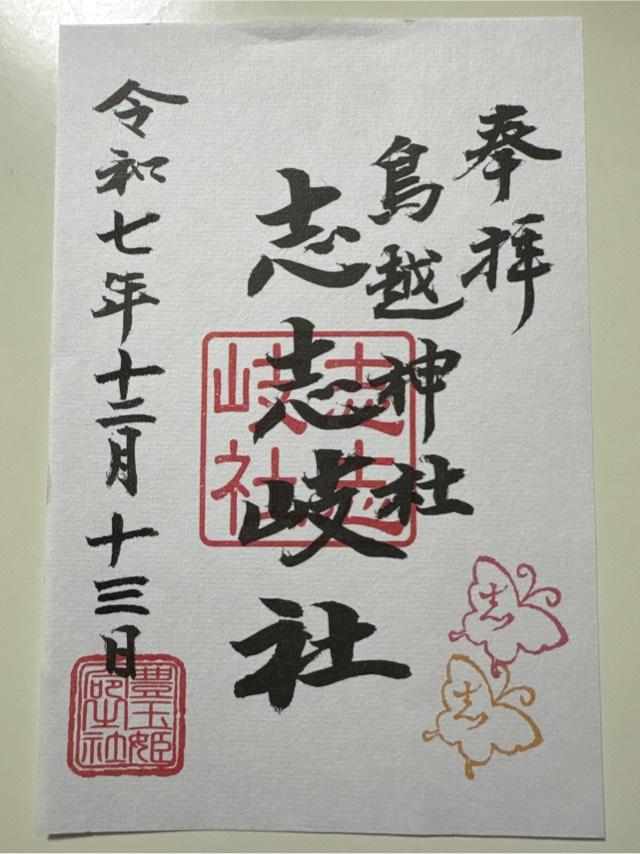 奉拝
鳥越神社
志志岐社
志志
岐社
令和七年十二月十三日
豊玉姫
志
志